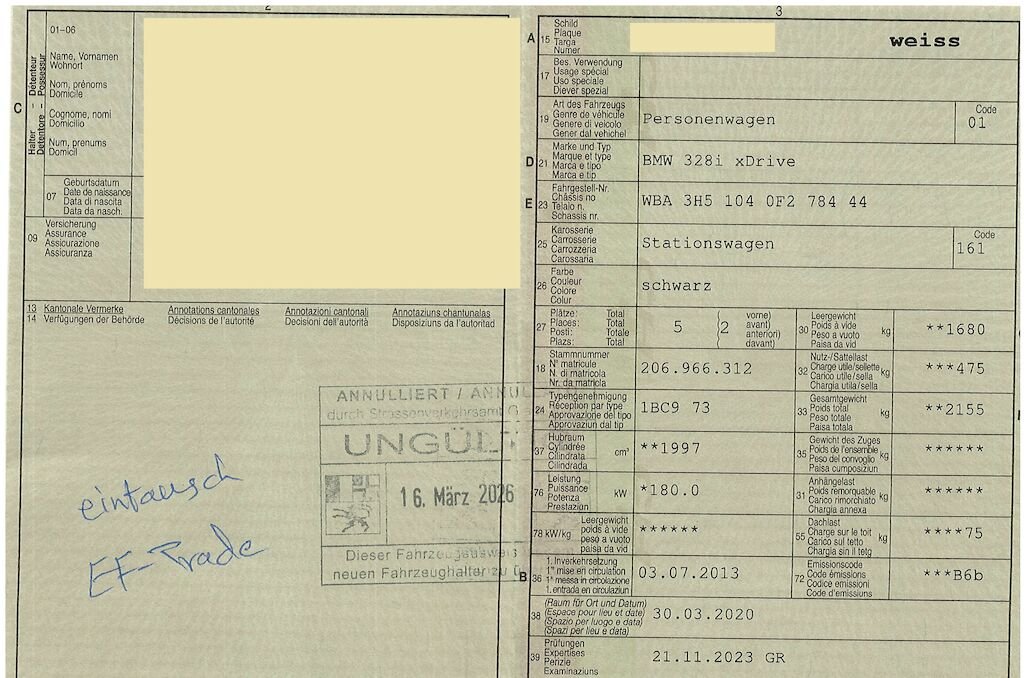 2
01–06
Name, Vornamen
Wohnort
Nom, prénoms
Domicile
Cognome, nomi
Domicilio
Num, prenums
Domicil
C
Halter – Détenteur
Detentore – Possessur
07
Geburtsdatum
Date de naissance
Data di nascita
Data da nasch.
09
Versicherung
Assurance
Assicurazione
Assicuranza
13 Kantonale Vermerke Annotations cantonales Annotazioni cantonali Annotaziuns chantunalas
14 Verfügungen der Behörde Décisions de l'autorité Decisioni dell'autorità Disposiziuns da l'autoritad
ANNULLIERT / ANNUL
durch Strassenverkehrsamt G
UNGÜL
16. März 2026
Dieser Fahrzeugausweis
neuen Fahrzeughalter zu ü
eintausch
EF-Trade
3
A 15 Schild
Plaque
Targa
Numer
weiss
17 Bes. Verwendung
Usage spécial
Uso speciale
Diever spezial
19 Art des Fahrzeugs
Genre de véhicule
Genere di veicolo
Gener dal vehichel
Personenwagen
Code
01
D 21 Marke und Typ
Marque et type
Marca e tipo
Marca e tip
BMW 328i xDrive
E 23 Fahrgestell-Nr.
Châssis no
Telaio n.
Schassis nr.
WBA 3H5 104 0F2 784 44
25 Karosserie
Carrosserie
Carrozzeria
Carossaria
Stationswagen
Code
161
26 Farbe
Couleur
Colore
Colur
schwarz
27 Plätze: Total
Places: Total
Posti: Totale
Plazs: Total
5 2
vorne)
avant)
anteriori)
davant)
30 Leergewicht
Poids à vide
Peso a vuoto
Paisa da vid
kg
**1680
18 Stammnummer
N° matricule
N. di matricola
Nr. da matricla
206.966.312
32 Nutz-/Sattellast
Charge utile/sellette
Carico utile/sella
Chargia utila/sella
kg
***475
24 Typengenehmigung
Réception par type
Approvazione del tipo
Approvaziun dal tip
1BC9 73
33 Gesamtgewicht
Poids total
Peso totale
Paisa totala
kg
**2155
37 Hubraum
Cylindrée
Cilindrata
Cilindrada
cm³
**1997
35 Gewicht des Zuges
Poids de l'ensemble
Peso del convoglio
Paisa cumposiziun
kg
******
76 Leistung
Puissance
Potenza
Prestaziun
kW
*180.0
31 Anhängelast
Poids remorquable
Carico rimorchiato
Chargia annexa
kg
******
78 kW/kg Leergewicht
poids à vide
peso a vuoto
paisa da vid
******
55 Dachlast
Charge sur le toit
Carico sul tetto
Chargia sin il tetg
kg
****75
B 36 1. Inverkehrsetzung
1re mise en circulation
1a messa in circolazione
1. entrada en circulaziun
03.07.2013
72 Emissionscode
Code émissions
Codice emissioni
Code d'emissiuns
***B6b
38 (Raum für Ort und Datum)
(Espace pour lieu et date)
(Spazio per luogo e data)
(Spazi per lieu e data)
30.03.2020
39 Prüfungen
Expertises
Perizie
Examinaziuns
21.11.2023 GR